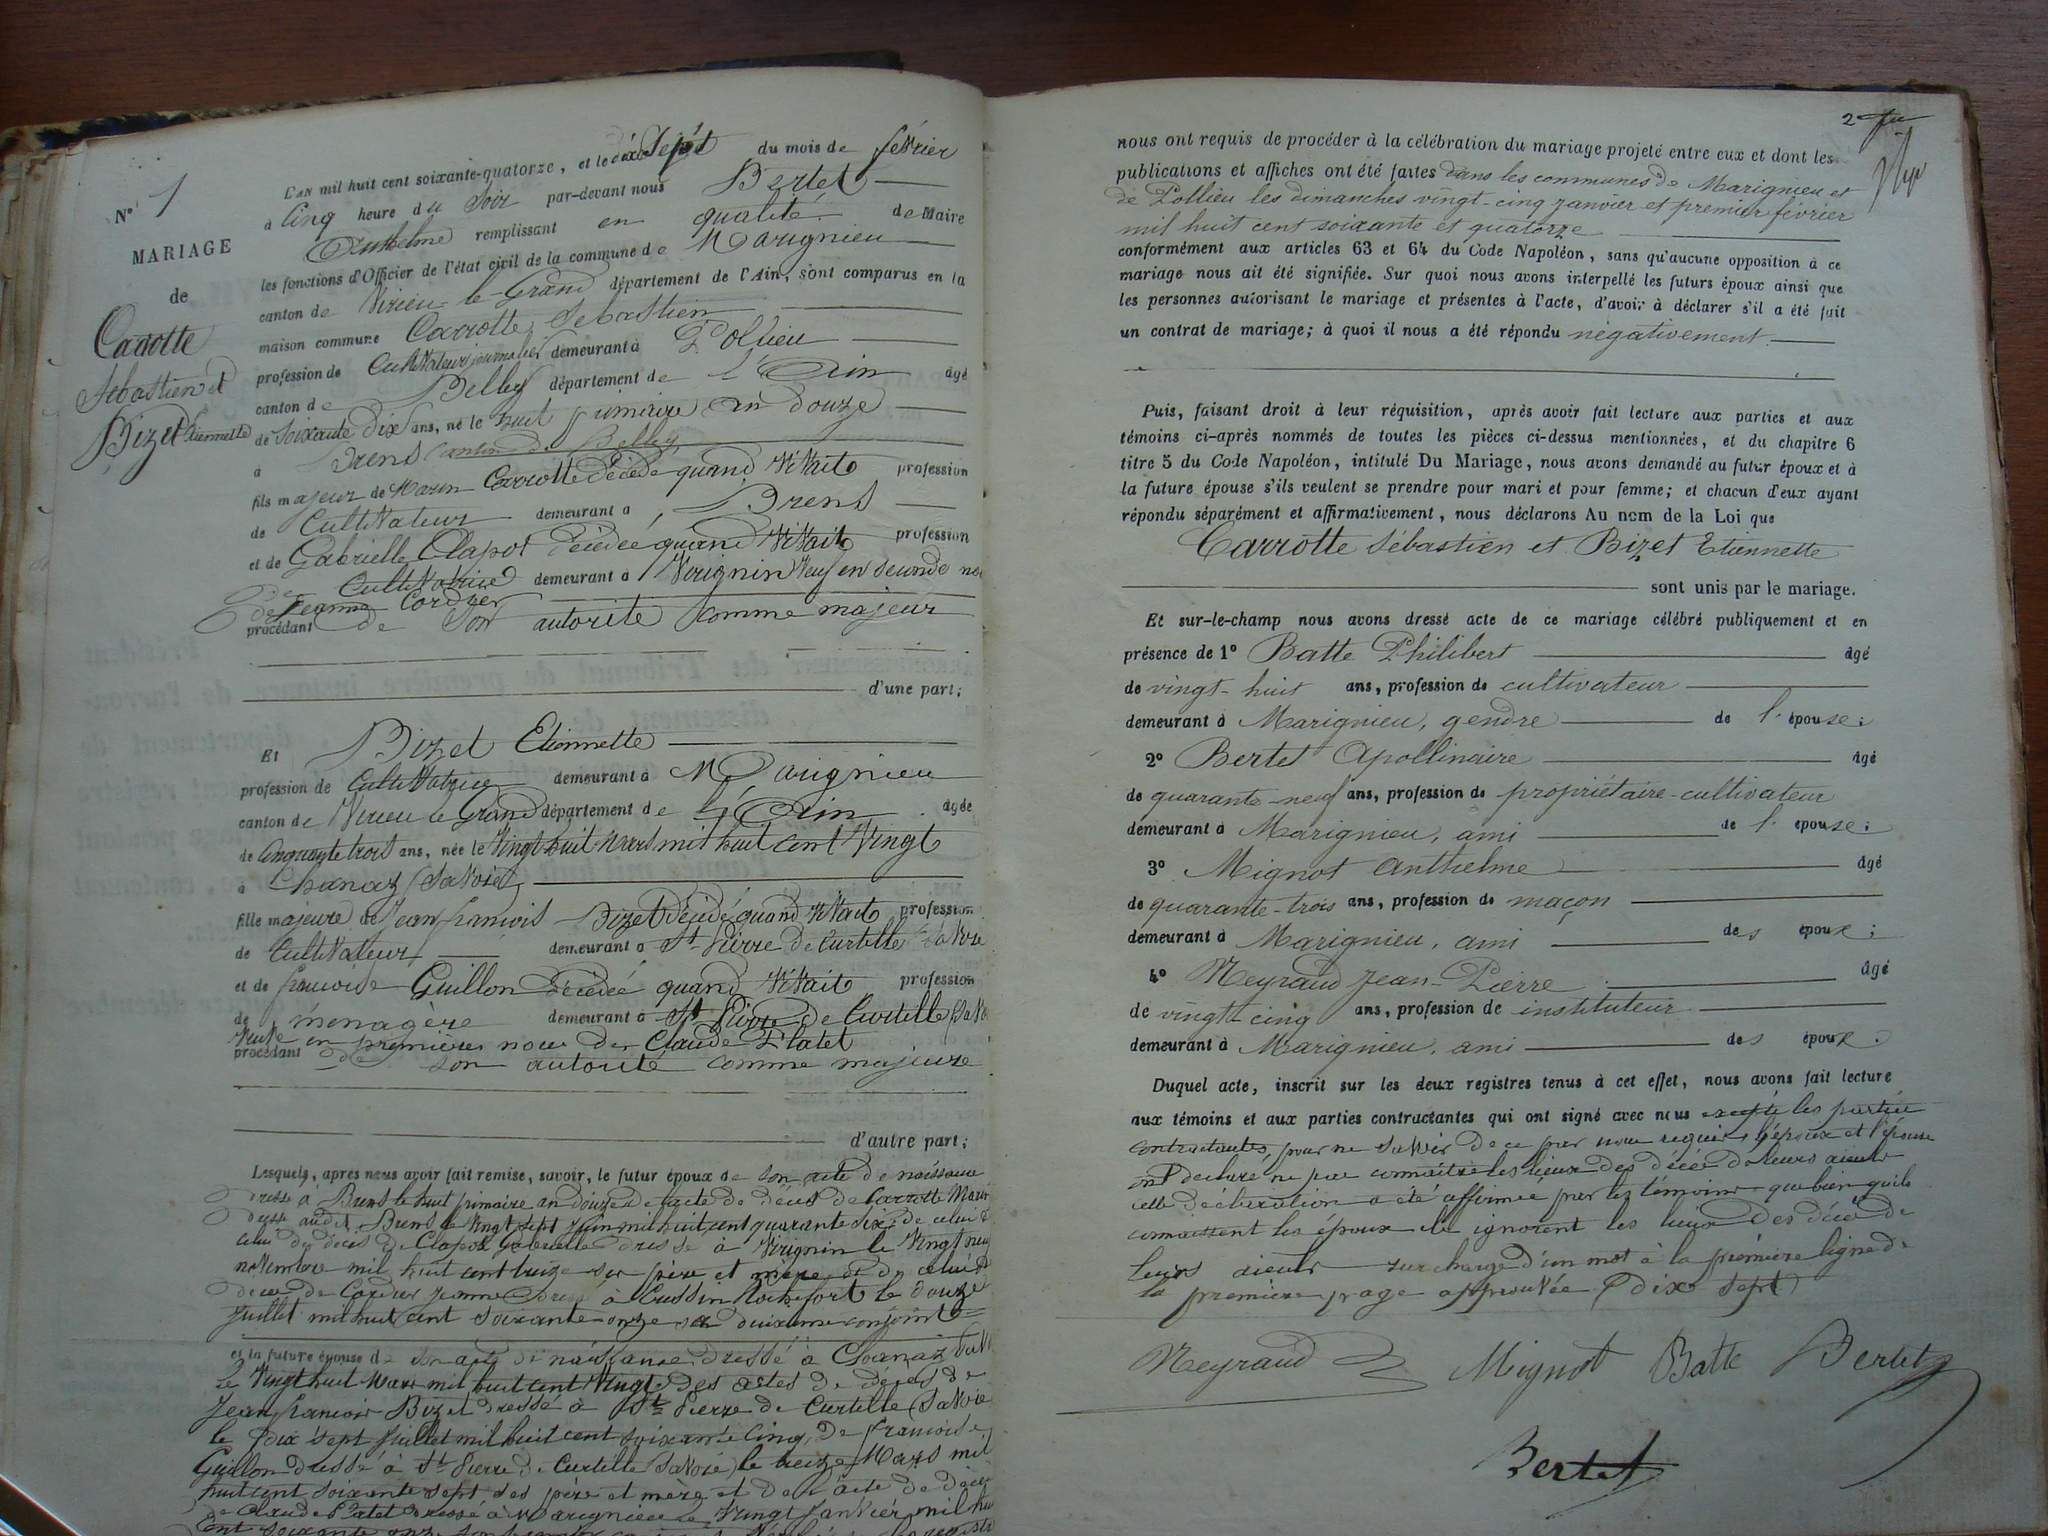 N° 1
MARIAGE
de
Carrotte
Sébastien et
Bizet Etiennette
L'AN mil huit cent soixante-quatorze, et le dix Sept du mois de février
à Cinq heure du Soir par-devant nous Bertet
Anthelme remplissant en qualité de Maire
les fonctions d'Officier de l'état civil de la commune de Marignieu
canton de Virieu-le-Grand département de l'Ain, sont comparus en la
maison commune Carrotte Sébastien
profession de Cultivateur journalier demeurant à Pollieu
canton de Belley département de l'Ain âgé
de Soixante Dix ans, né le huit frimaire an douze
à Brens Canton de Belley
fils majeur de Marin Carrotte décédé quand vivait profession
de Cultivateur demeurant à Brens
et de Gabrielle Clapot décédée quand vivait profession
de Cultivatrice demeurant à Virignin Veuf en Seconde
de Jeanne Cordier
procédant de Son autorité comme majeur
d'une part;
Et Bizet Etiennette
profession de Cultivatrice demeurant à Marignieu
canton de Virieu le Grand département de l'Ain âgée
de Cinquante trois ans, née le Vingt huit Mars mil huit Cent Vingt
à Chanaz (Savoie)
fille majeure de Jean françois Bizet décédé quand vivait profession
de Cultivateur demeurant à St Pierre de Curtille Savoie
et de françoise Guillon décédée quand vivait profession
de ménagère demeurant à St Pierre de Curtille
Veuve en premières noces de Claude Platet
procédant de son autorité comme majeure
d'autre part;
Lesquels, après nous avoir fait remise, savoir, le futur époux de Son acte de naissance
dressé à Brens le huit frimaire an douze de l'acte de décès de Carrotte Marin
dressé audit Brens le Vingt Sept Juin mil huit cent quarante Six de celui
celui du décès de Clapot Gabrielle dressé à Virignin le Vingt neuf
novembre mil huit cent treize ses père et mère et de celui de
décès de Cordier Jeanne dressé à Cressin Rochefort le douze
Juillet mil huit cent soixante onze sa deuxième conjointe
et la future épouse de son acte de naissance dressé à Chanaz
le Vingt huit Mars mil huit cent Vingt des actes de décès de
Jean françois Bizet dressé à St Pierre de Curtille (Savoie
le dix sept Juillet mil huit cent soixante Cinq, de françoise
Guillon dressé à St Pierre de Curtille (Savoie) le treize Mars mil
huit cent soixante sept ses père et mère et de l'acte de décès
de Claude Platet dressé à Marignieu le Vingt Janvier mil huit
cent soixante onze
2
nous ont requis de procéder à la célébration du mariage projeté entre eux et dont les
publications et affiches ont été faites dans les communes de Marignieu et
de Pollieu les dimanches vingt-cinq janvier et premier février
mil huit cent soixante et quatorze
conformément aux articles 63 et 64 du Code Napoléon, sans qu'aucune opposition à ce
mariage nous ait été signifiée. Sur quoi nous avons interpellé les futurs époux ainsi que
les personnes autorisant le mariage et présentes à l'acte, d'avoir à déclarer s'il a été fait
un contrat de mariage; à quoi il nous a été répondu négativement.
Puis, faisant droit à leur réquisition, après avoir fait lecture aux parties et aux
témoins ci-après nommés de toutes les pièces ci-dessus mentionnées, et du chapitre 6
titre 5 du Code Napoléon, intitulé Du Mariage, nous avons demandé au futur époux et à
la future épouse s'ils veulent se prendre pour mari et pour femme; et chacun d'eux ayant
répondu séparément et affirmativement, nous déclarons Au nom de la Loi que
Carrotte Sébastien et Bizet Etiennette
sont unis par le mariage.
Et sur-le-champ nous avons dressé acte de ce mariage célébré publiquement et en
présence de 1° Batte Philibert âgé
de vingt-huit ans, profession de cultivateur
demeurant à Marignieu, gendre de l'épouse;
2° Bertet Apollinaire âgé
de quarante-neuf ans, profession de propriétaire-cultivateur
demeurant à Marignieu, ami de l'épouse;
3° Mignot Anthelme âgé
de quarante-trois ans, profession de maçon
demeurant à Marignieu, ami des époux;
4° Meyraud Jean-Pierre âgé
de vingt-cinq ans, profession de instituteur
demeurant à Marignieu, ami des époux.
Duquel acte, inscrit sur les deux registres tenus à cet effet, nous avons fait lecture
aux témoins et aux parties contractantes qui ont signé avec nous excepté les parties
contractantes, pour ne savoir de ce par nous requis, l'époux et l'épouse
ont déclaré ne pas connaître les lieux des décès de leurs aieuls
cette déclaration a été affirmée par les témoins que bien qu'ils
connaissent les époux ils ignorent les lieux des décès de
leurs aieuls surcharge d'un mot à la première ligne de
la première page approuvée (dix sept)
Meyraud Mignot Batte Bertet
Bertet